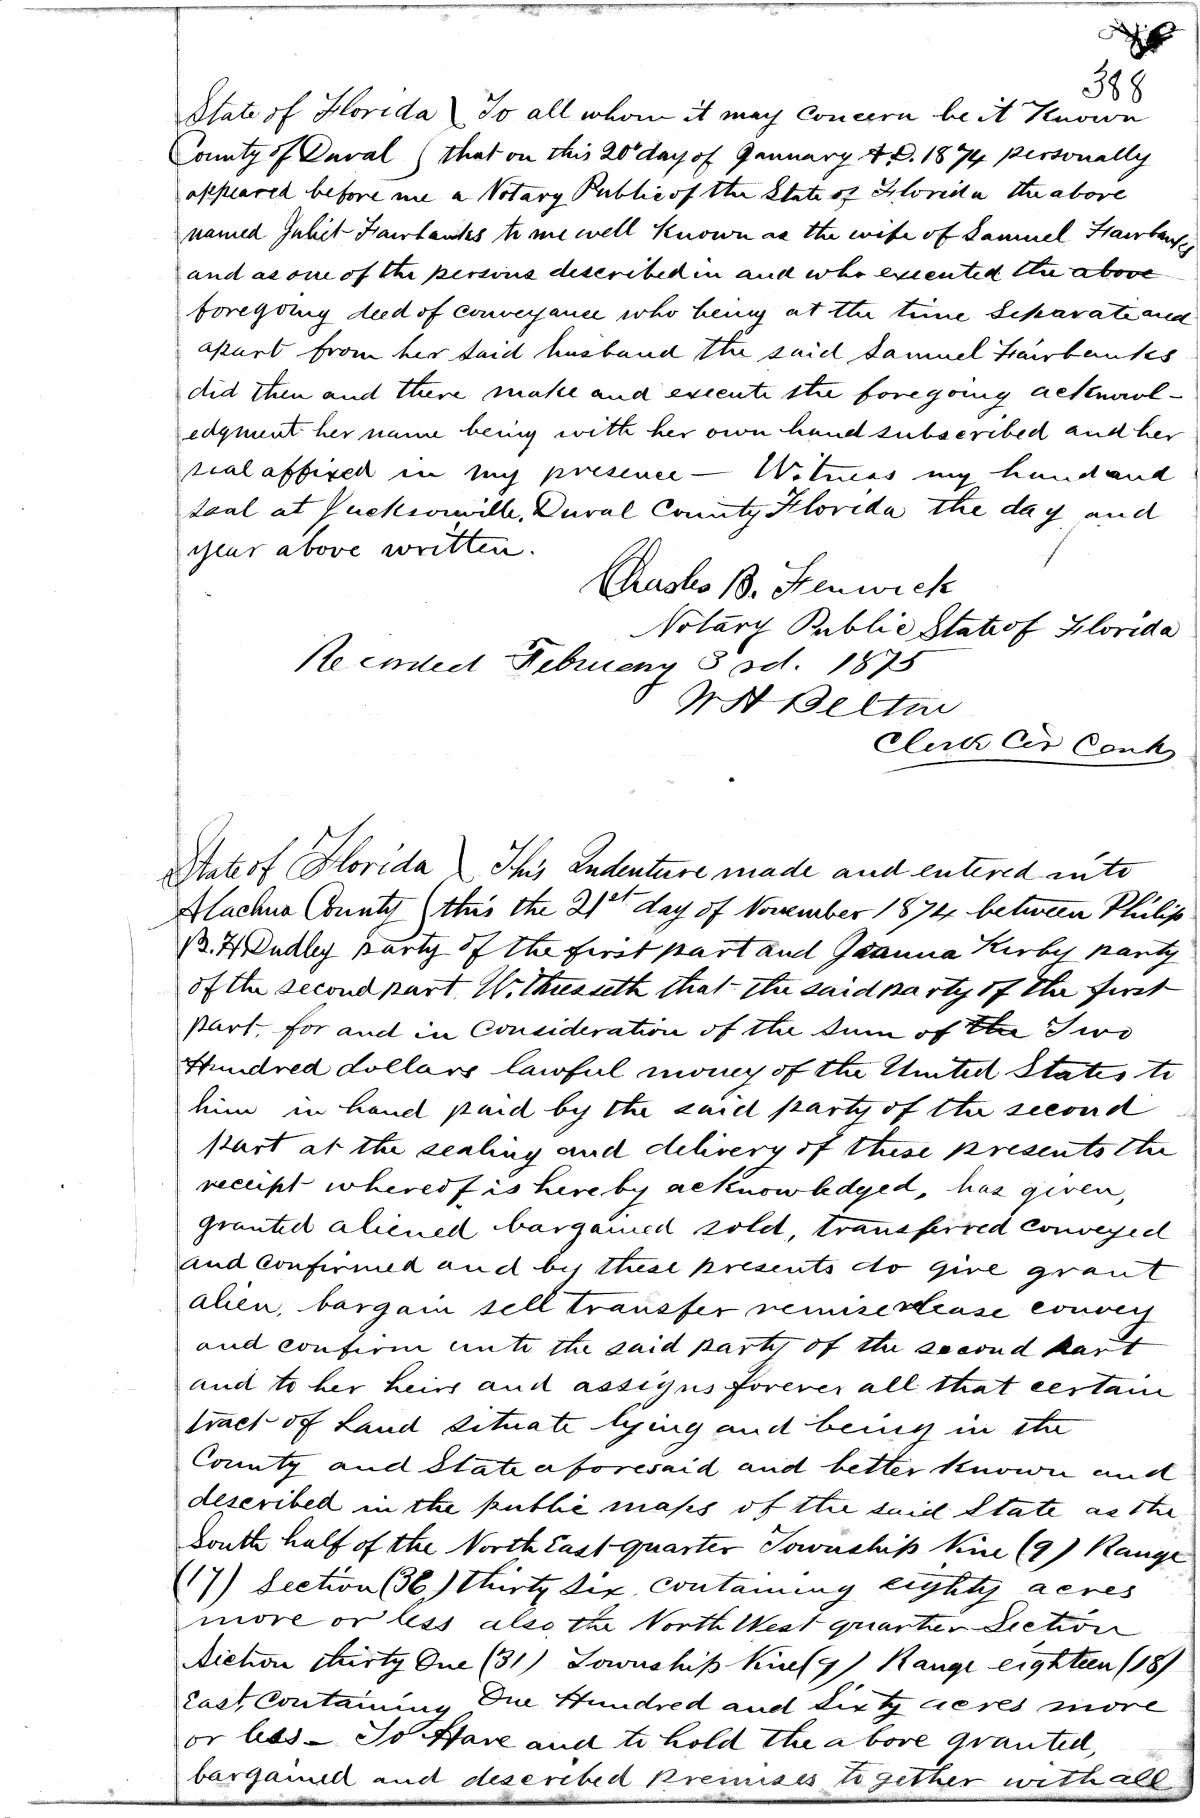 388
State of Florida ) To all whom it may concern be it Known
County of Duval ) that on this 20th day of January A.D. 1874 personally
appeared before me a Notary Public of the State of Florida the above
named Juliet Fairbanks to me well known as the wife of Samuel Fairbanks
and as one of the persons described in and who executed the above
foregoing deed of conveyance who being at the time separate and
apart from her said husband the said Samuel Fairbanks
did then and there make and execute the foregoing acknowl-
edgment her name being with her own hand subscribed and her
seal affixed in my presence — Witness my hand and
seal at Jacksonville, Duval County Florida the day and
year above written.
Charles B. Fenwick
Notary Public State of Florida
Recorded February 3rd. 1875
W H Belton
Clerk Cir Court
State of Florida ) This Indenture made and entered into
Alachua County ) this the 21st day of November 1874 between Philip
B. H Dudley party of the first part and Joanna Kirby party
of the second part. Witnesseth that the said party of the first
part, for and in consideration of the sum of the Two
Hundred dollars lawful money of the United States to
him in hand paid by the said party of the second
part at the sealing and delivery of these presents the
receipt whereof is hereby acknowledged, has given,
granted aliened bargained sold, transferred conveyed
and confirmed and by these presents do give grant
alien, bargain sell transfer remise release convey
and confirm unto the said party of the second part
and to her heirs and assigns forever all that certain
tract of Land situate lying and being in the
County and State aforesaid and better known and
described in the public maps of the said State as the
South half of the North East quarter Township Nine (9) Range
(17) Section (36) thirty six, containing eighty acres
more or less also the North West quarter Section
Section thirty One (31) Township Nine (9) Range eighteen (18)
East, Containing One Hundred and Sixty acres more
or less — To Have and to hold the above granted,
bargained and described premises together with all